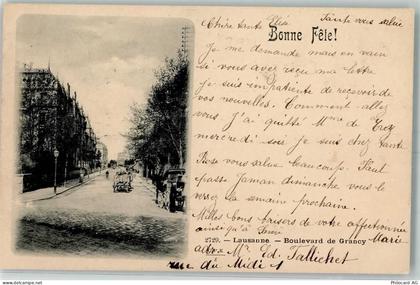 Chère tante Elise Tante vous salue
Bonne Fête!
Je me demande mais en vain
si vous avez reçu ma lettre
Je suis impatiente de recevoir de
vos nouvelles. Comment allez
vous, j'ai quitté Mme de Trey
mercredi soir je suis chez tante
Rose vous salue beaucoup. Paul
passe Jaman dimanche vous le
verrez la semaine prochaine.
Milles bons baisers de votre affectionnée
Marie
2729. — Lausanne. — Boulevard de Grancy
Mr. Ed. Tallichet
rue du Midi 1
PICCLICK.AC